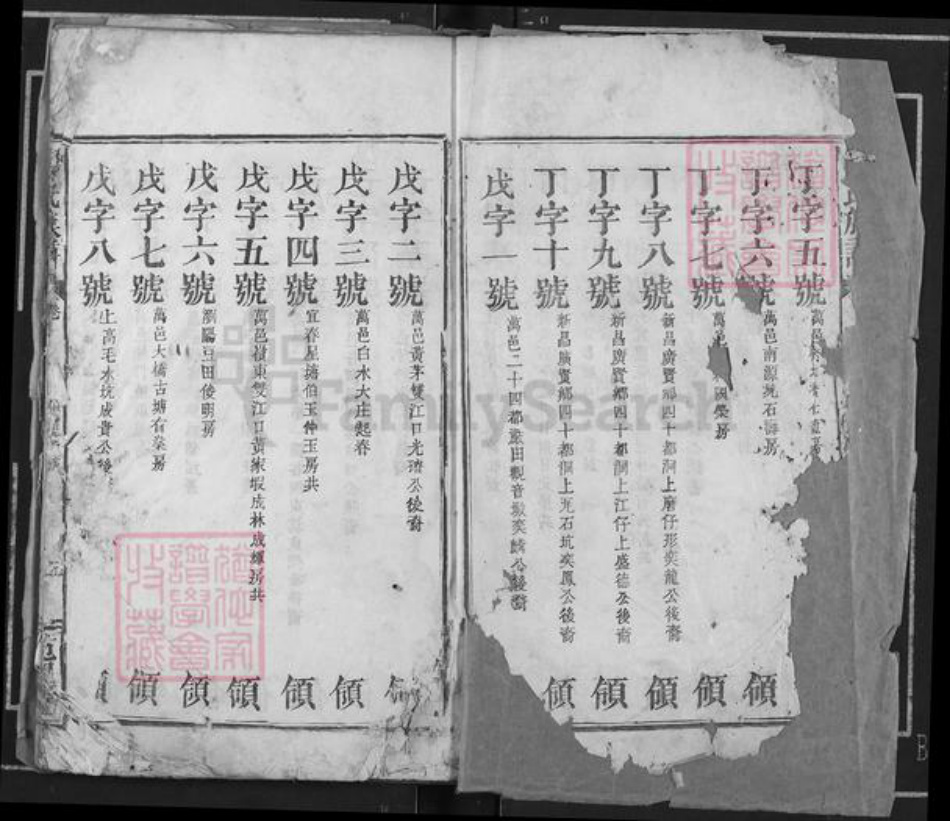 丁字五號
丁字六號 萬邑南源坑石海房 領
丁字七號 萬邑 國榮房 領
丁字八號 新昌廣賢鄉四十都洞上磨仔形奕龍公後裔 領
丁字九號 新昌廣賢鄉四十都洞上江仔上盛德公後裔 領
丁字十號 新昌廣賢鄉四十都洞上瓦石坑奕鳳公後裔 領
戊字一號 萬邑二十四都 田觀音 奕麟公後裔
戊字二號 萬邑黃茅雙江口光 公後裔 領
戊字三號 萬邑白水大庄起春 領
戊字四號 宜春星塘伯玉仲玉房共 領
戊字五號 萬邑 東雙江口黃家 成林成輝房共 領
戊字六號 瀏陽豆田俊明房 領
戊字七號 萬邑大橋古塘有 房 領
戊字八號 上高毛水坑成貴公後 領
FamilySearch